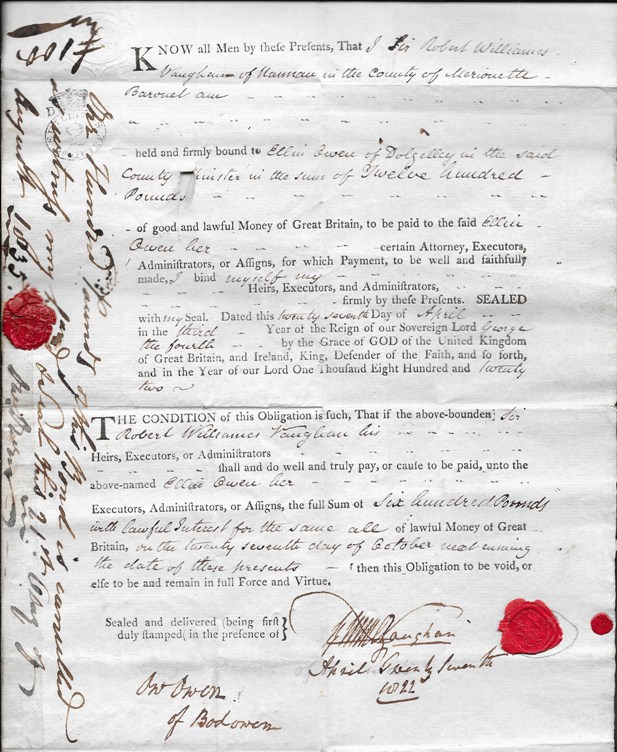 KNOW all Men by these Presents, That I Sir Robert Williames
Vaughan of Nannau in the County of Merionette
Baronet am
held and firmly bound to Ellin Owen of Dolgelley in the said
County Spinster in the sum of Twelve hundred
Pounds
of good and lawful Money of Great Britain, to be paid to the said Ellin
Owen her certain Attorney, Executors,
Administrators, or Assigns, for which Payment, to be well and faithfully
made, I bind myself my
Heirs, Executors, and Administrators,
firmly by these Presents. SEALED
with my Seal. Dated this twenty seventh Day of April
in the third Year of the Reign of our Sovereign Lord George
the fourth by the Grace of GOD of the United Kingdom
of Great Britain, and Ireland, King, Defender of the Faith, and so forth,
and in the Year of our Lord One Thousand Eight Hundred and twenty
two
THE CONDITION of this Obligation is such, That if the above-bounden; Sir
Robert Williames Vaughan his
Heirs, Executors, or Administrators
shall and do well and truly pay, or cause to be paid, unto the
above-named Ellin Owen her
Executors, Administrators, or Assigns, the full Sum of Six hundred Pounds
with lawful Interest for the same all of lawful Money of Great
Britain, on the twenty seventh day of October next ensuing
the date of these presents then this Obligation to be void, or
else to be and remain in full Force and Virtue.
Sealed and delivered (being first
duly stamped) in the presence of
Vaughan
April Twenty Seventh
1822
Owen
of Bodowen
£100
One Hundred pounds of this Bond is cancelled
as witness my hand
and seal this 21st day of
August 1835